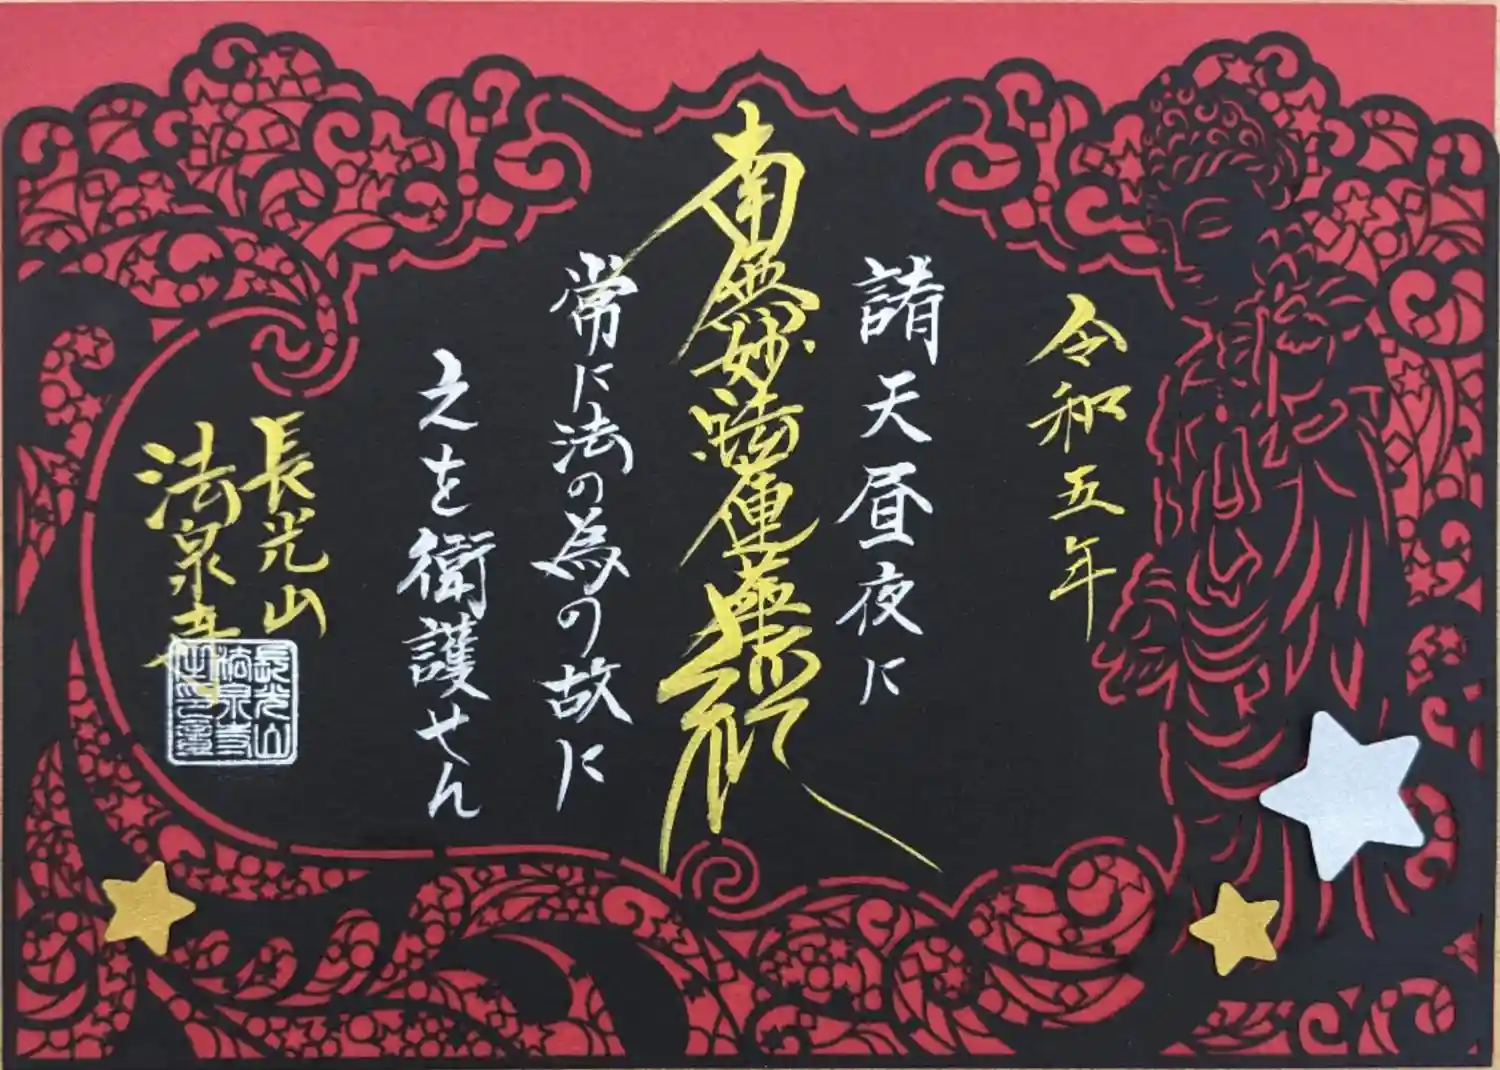 令和五年
諸天昼夜に
南無妙法蓮華経
常に法の為の故に
之を衛護せん
長光山
法泉寺
長光山
法泉寺